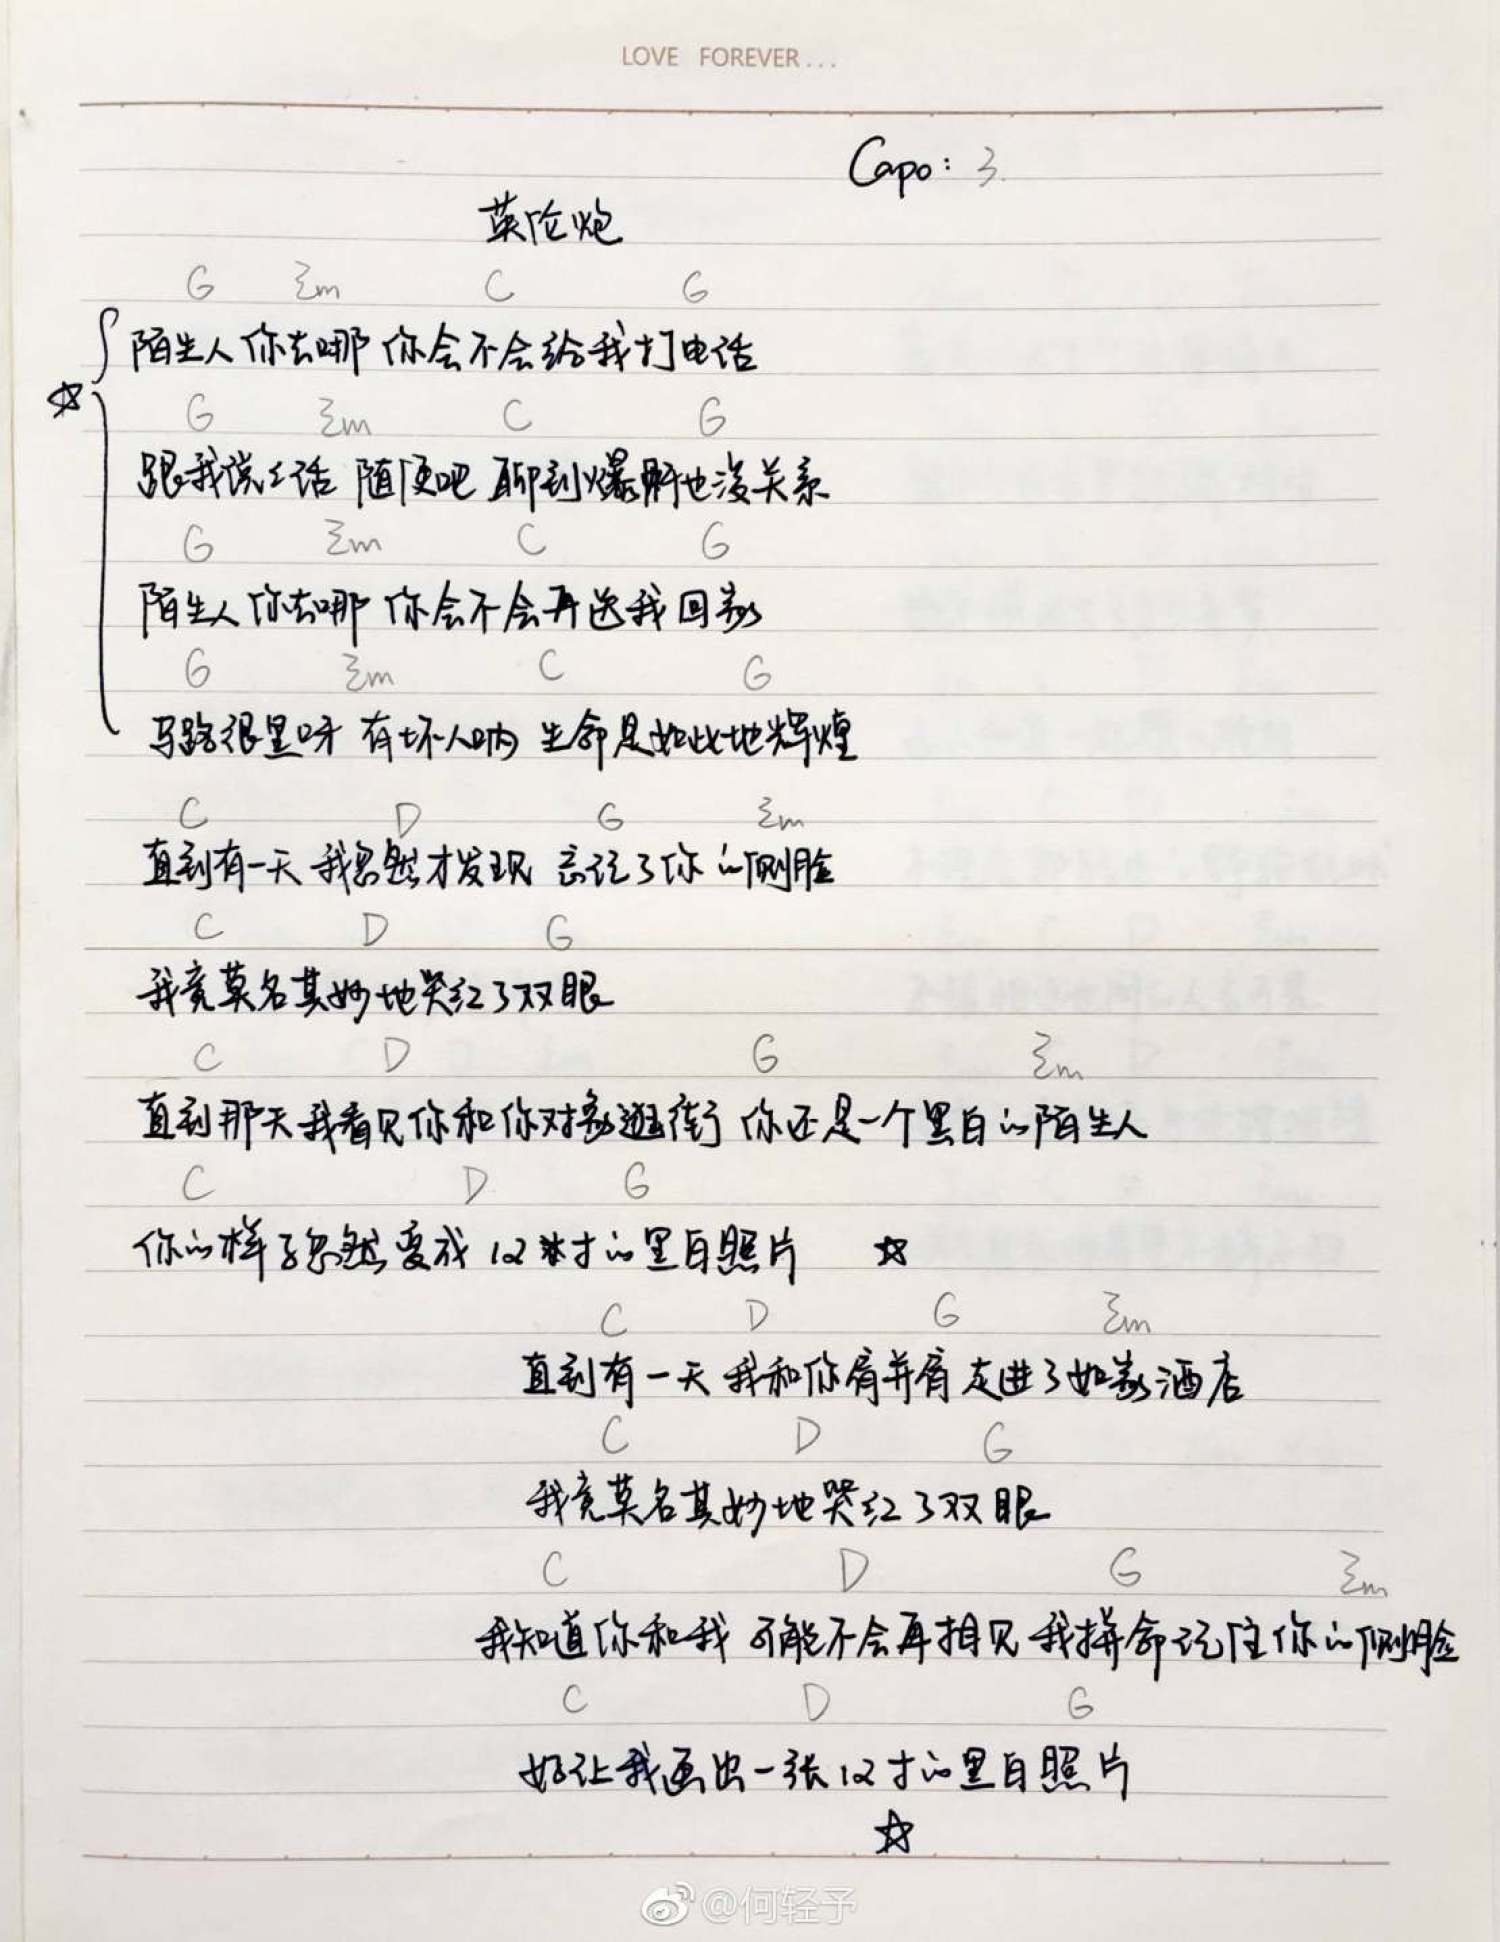 LOVE FOREVER...
Capo: 3.
英伦炮
G Em C G
陌生人你去哪 你会不会给我打电话
☆
G Em C G
跟我说说话 随便吧 聊到爆肝也没关系
G Em C G
陌生人你去哪 你会不会再送我回家
G Em C G
马路很黑呀 有坏人呐 生命是如此地辉煌
C D G Em
直到有一天我忽然才发现 忘记了你的侧脸
C D G
我竟莫名其妙地哭红了双眼
C D G Em
直到那天我看见你和你对象逛街 你还是一个黑白的陌生人
C D G
你的样子忽然变成12寸的黑白照片 ☆
C D G Em
直到有一天 我和你肩并肩走进了如家酒店
C D G
我竟莫名其妙地哭红了双眼
C D G Em
我知道你和我 可能不会再相见 我拼命记住你的侧脸
C D G
好让我画出一张12寸的黑白照片
☆
@何轻予